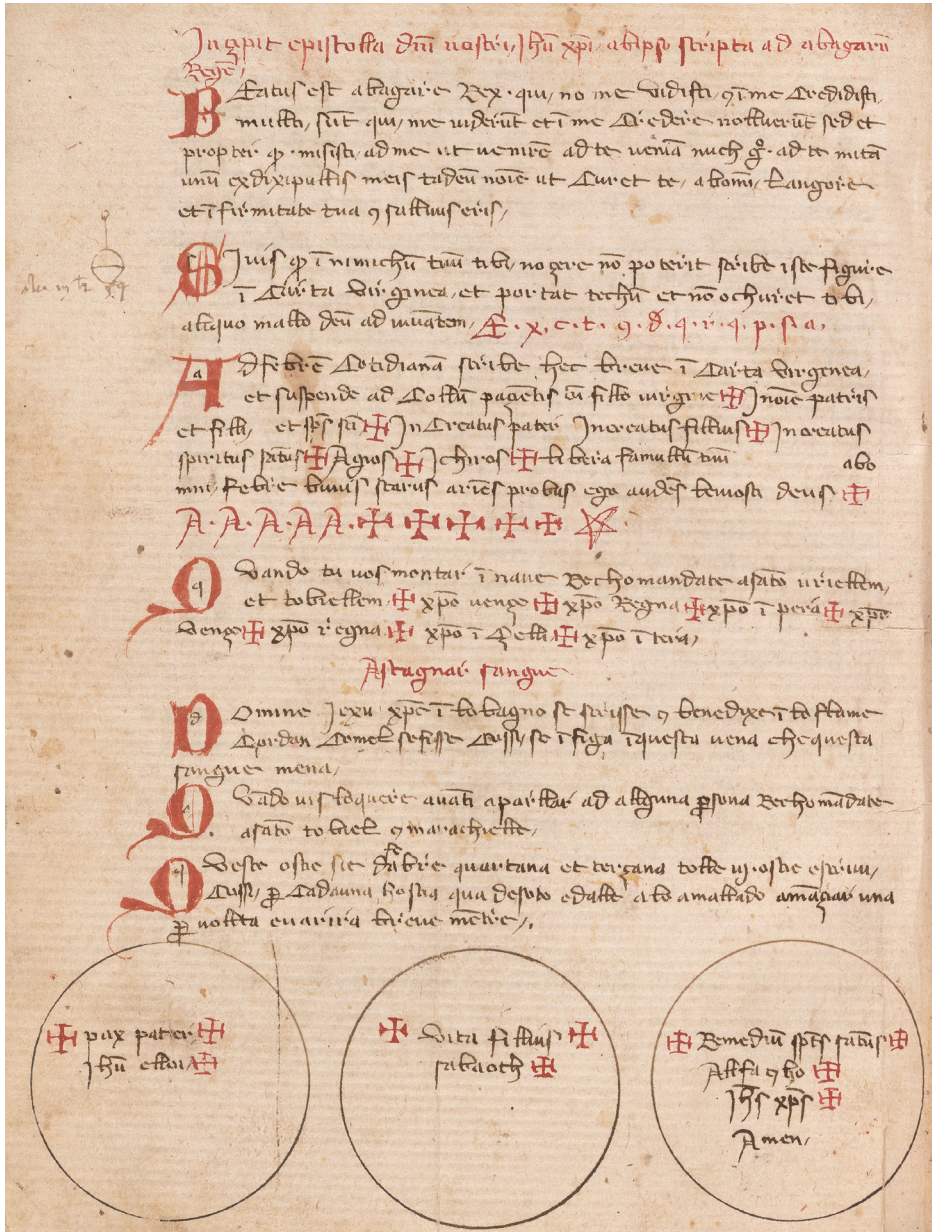 Inzipit epistolla dñi nostri Jhũ xp̃i abipso scripta ad abagarũ
Regẽ
BEatus est abagare Rex qui no me vidisti ꝯ ĩ me Credidisti
multi sũt qui me viderũt et ĩ me Credere nolluerũt sed et
propter misisti ad me ut venirẽ ad te ad te mitã
unũ ex dixipullis meis tadeũ noĩe ut Curet te abomni Langore
et ĩfirmitate tua ꝯ salluus eris
SJ vis ĩnimichũ tuũ tibi nozere nõ poterit scribe iste figure
ĩ Carta virginea et portat techũ et nõ ochuret tibi
aliquo mallo deũ adiuuãtem Æ . x . c . t . 9 . d . q . r . q . p . s . a .
Ad febrẽ Cotidianã scribe hec breve ĩ Carta virgenea
et suspende ad Collũ pazẽtis fillo virgine ✠ J noĩe patris
et filli et sp̃s sc̃i ✠ Jn Creatus pater Jncreatus fillius ✠ Jn creatus
spiritus sãtus ✠ Agios ✠ Jchiros ✠ libera famullũ tuũ abo
mni febre deus ✠
A . A . A . A . A . ✠ ✠ ✠ ✠ ✠ ⛤ .
Quando tu vos montar ĩ nave Rechomandate asãto uriellem
et tobiellem ✠ xp̃o venze ✠ xp̃o Regna ✠ xp̃o ĩpera ✠ xp̃o
venze ✠ xp̃o regna ✠ xp̃o ĩ Zelli ✠ xp̃o ĩ tera
Astagnar sangue
Domine Jexu xp̃e ĩ lo bagno se scrisse ꝯ benedixe ĩ lo flame
Cordan Comel sefisse Cossi se ĩfiga ĩ questa vena che questa
sangue mena
Quãdo vis loquere avãti aparllar ad allguna ꝑsona Rechomãdate
asãto tobiel ꝯ marachielle
Queste ostie sie dafebre quartana et terzana tolle iij ostie escrivi
Cossi ꝑ Cadauna hostia qua desoto edalle alo amallado amãzar una
ꝑ vollta evarira breve mẽtre
✠ pax pater ✠
Jhũ elloi ✠
✠ Vita fillius ✠
sabaoth ✠
✠ Remediũ sp̃ts sãtus ✠
Allfa ꝯ ho ✠
Jh̃s xp̃s ✠
Amen